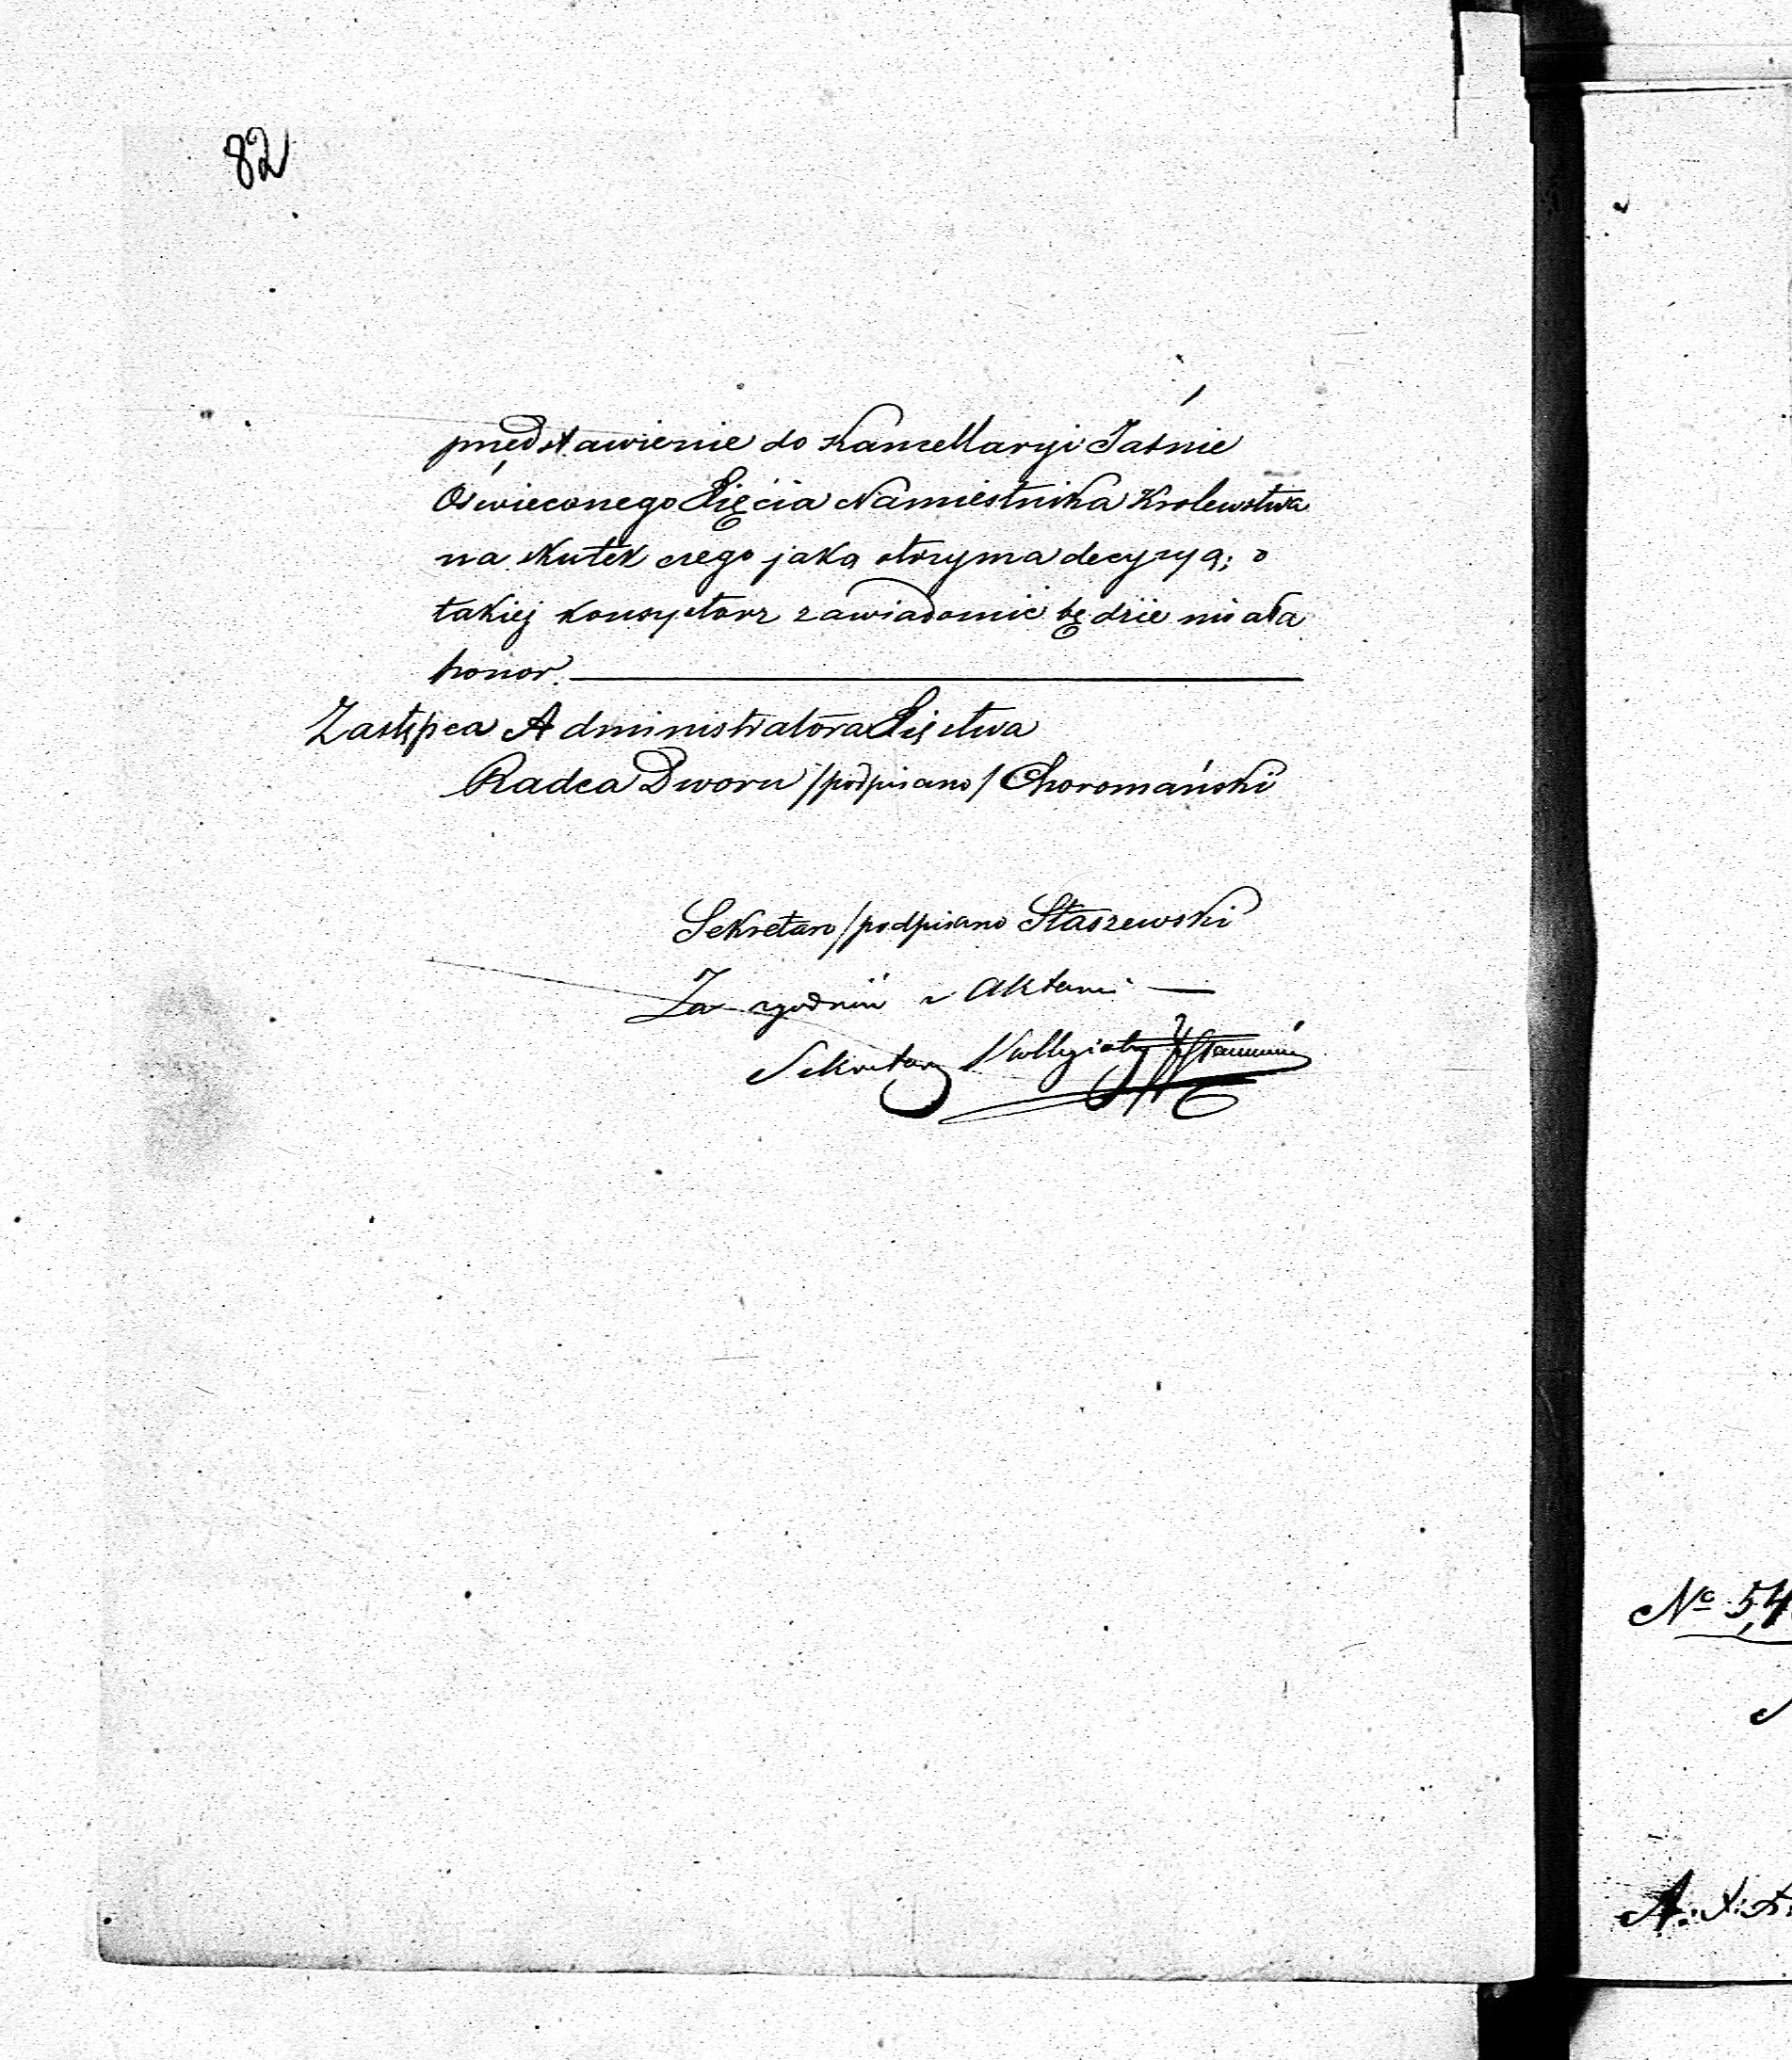 82
przedstawienie do Kancellaryi Jaśnie
Oświeconego Xięcia Namiestnika Krolewstwa
na skutek czego jaką otrzyma decyzyą; o
takiej konsystorz zawiadomić będzie miała
honor.
Zastępca Administratora Xięstwa
Radca Dworu /podpisano/ Choromański
Sekretarz /podpisano Staszewski
Za zgodność z Aktami —
Sekretarz Kollegiaty
Nº 54